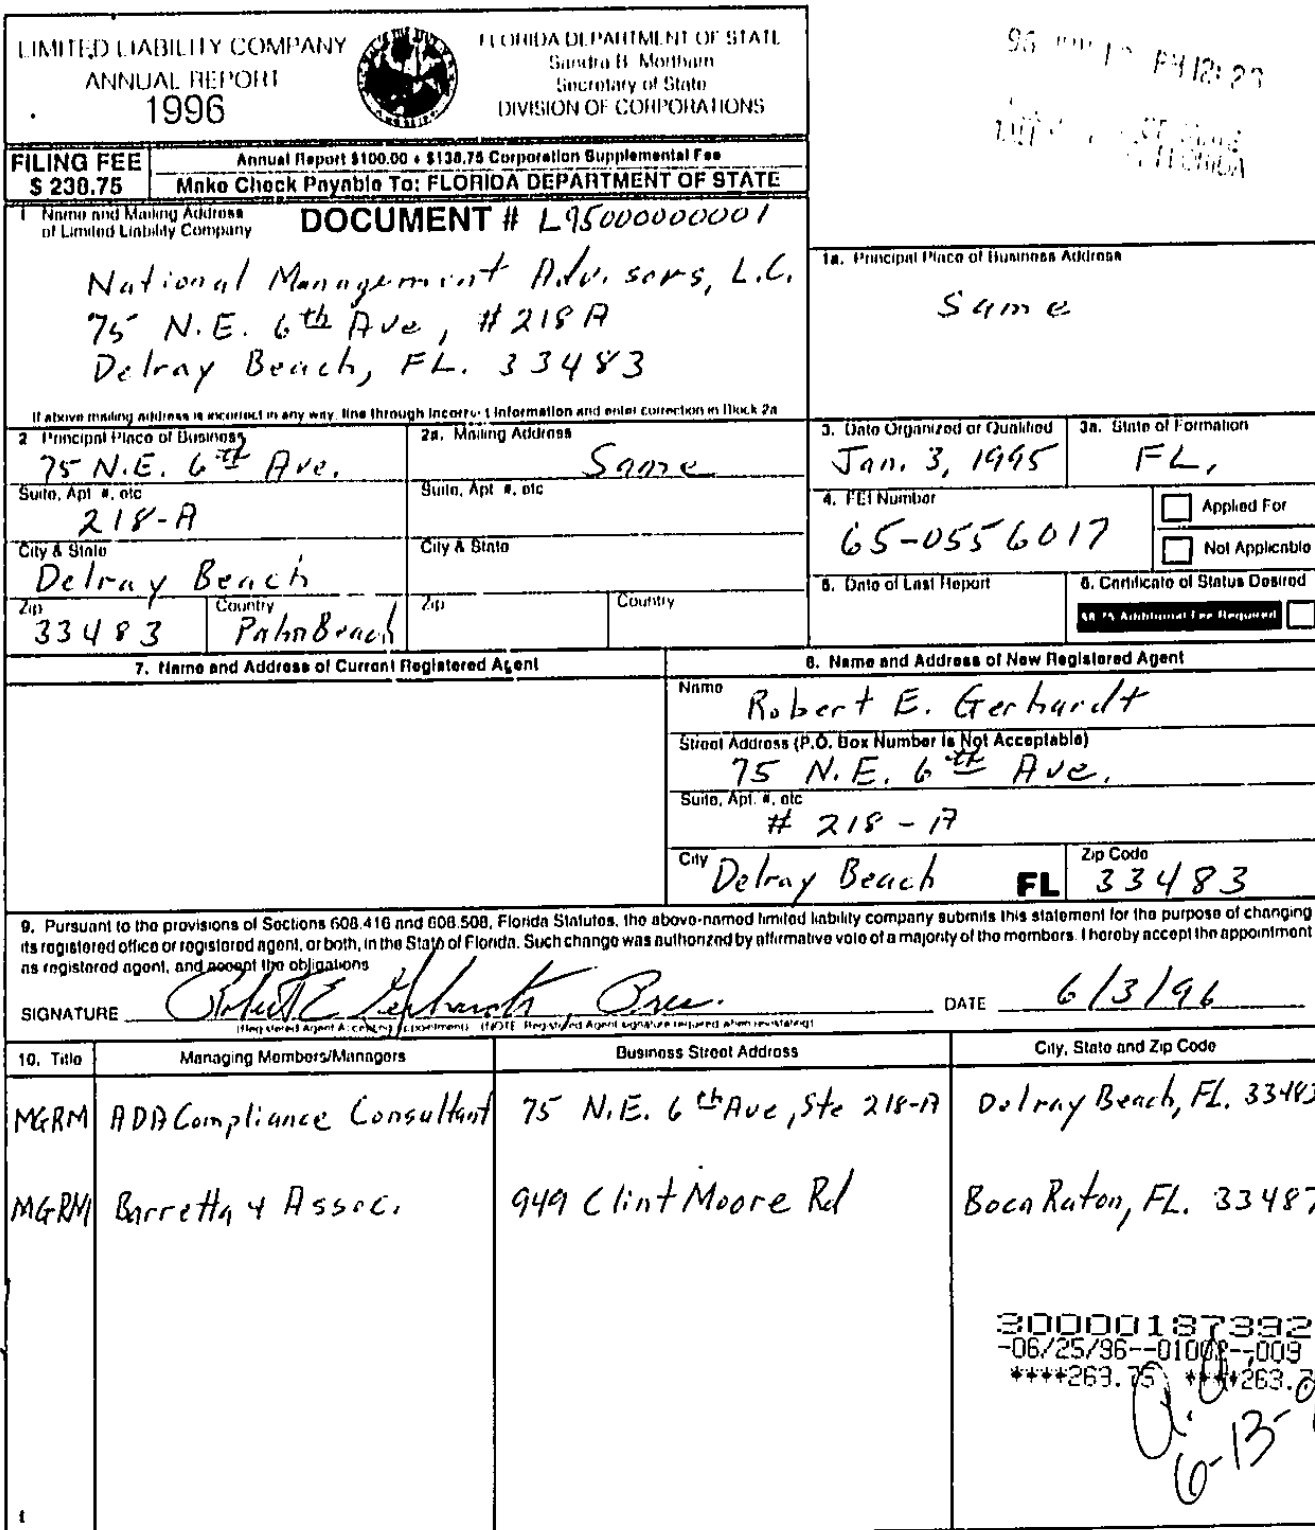 LIMITED LIABILITY COMPANY
ANNUAL REPORT
1996
FLORIDA DEPARTMENT OF STATE
Sandra B. Mortham
Secretary of State
DIVISION OF CORPORATIONS
PM 12: 23
FLORIDA
FILING FEE
$ 238.75
Annual Report $100.00 + $138.75 Corporation Supplemental Fee
Make Check Payable To: FLORIDA DEPARTMENT OF STATE
1 Name and Mailing Address
of Limited Liability Company
DOCUMENT # L95000000001
National Management Advisors, L.C.
75 N.E. 6th Ave, #218A
Delray Beach, FL. 33483
If above mailing address is incorrect in any way, line through incorrect information and enter correction in Block 2a
1a. Principal Place of Business Address
Same
2 Principal Place of Business
75 N.E. 6th Ave.
2a. Mailing Address
Same
Suite, Apt #, etc
218-A
Suite, Apt #, etc
City & State
Delray Beach
City & State
Zip
33483
Country
Palm Beach
Zip
Country
3. Date Organized or Qualified
Jan. 3, 1995
3a. State of Formation
FL,
4. FEI Number
65-0556017
Applied For
Not Applicable
5. Date of Last Report
6. Certificate of Status Desired
$8.75 Additional Fee Required
7. Name and Address of Current Registered Agent
8. Name and Address of New Registered Agent
Name
Robert E. Gerhardt
Street Address (P.O. Box Number is Not Acceptable)
75 N.E. 6th Ave.
Suite, Apt. #, etc
# 218-A
City
Delray Beach FL
Zip Code
33483
9. Pursuant to the provisions of Sections 608.416 and 608.508, Florida Statutes, the above-named limited liability company submits this statement for the purpose of changing
its registered office or registered agent, or both, in the State of Florida. Such change was authorized by affirmative vote of a majority of the members. I hereby accept the appointment
as registered agent, and accept the obligations
SIGNATURE Robert E Gerhardt, Pres. DATE 6/3/96
(Registered Agent Accepting Appointment) (NOTE Registered Agent signature required when reinstating)
10. Title Managing Members/Managers Business Street Address City, State and Zip Code
MGRM ADA Compliance Consultant 75 N.E. 6th Ave, Ste 218-A Delray Beach, FL. 33483
MGRM Barretta & Assoc. 949 Clint Moore Rd Boca Raton, FL. 33487
30000187392
-06/25/96--01008--009
****263.75 ****263.7
6-13-